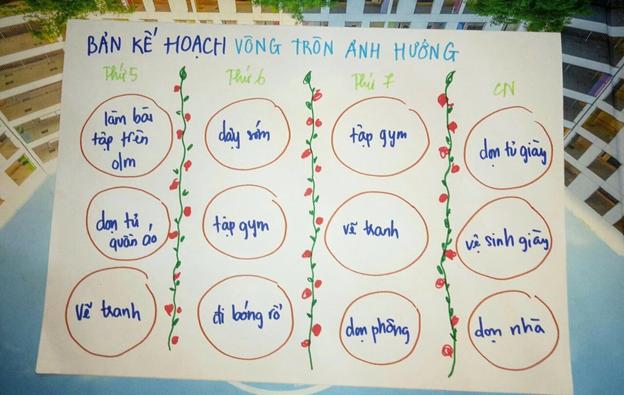 BẢN KẾ HOẠCH VÒNG TRÒN ẢNH HƯỞNG
Thứ 5
làm bài
tập trên
olm
dọn tủ
quần áo
vẽ tranh
Thứ 6
dậy sớm
tập gym
đi bóng rổ
Thứ 7
tập gym
vẽ tranh
dọn phòng
CN
dọn tủ giày
vệ sinh giày
dọn nhà